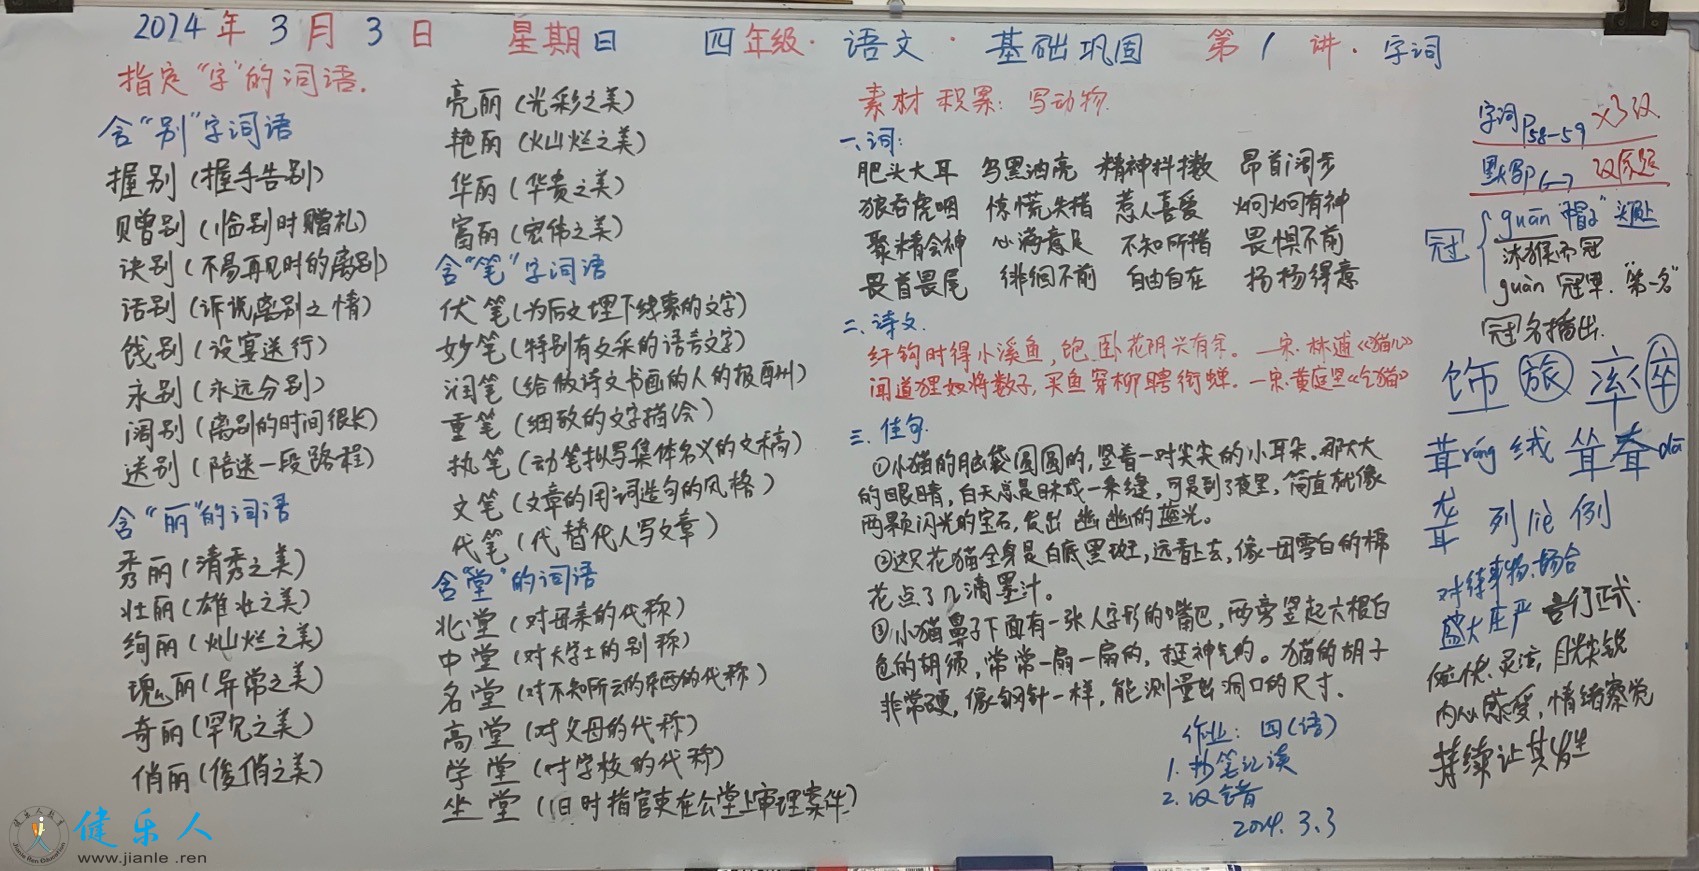 2024年3月3日 星期日 四年级·语文·基础巩固 第1讲·字词
指定“字”的词语.
含“别”字词语
握别(握手告别)
赠别(临别时赠礼)
诀别(不易再见时的离别)
话别(诉说离别之情)
饯别(设宴送行)
永别(永远分别)
阔别(离别的时间很长)
送别(陪送一段路程)
含“丽”的词语
秀丽(清秀之美)
壮丽(雄壮之美)
绚丽(灿烂之美)
瑰丽(异常之美)
奇丽(罕见之美)
俏丽(俊俏之美)
亮丽(光彩之美)
艳丽(灿烂之美)
华丽(华贵之美)
富丽(宏伟之美)
含“笔”字词语
伏笔(为后文埋下线索的文字)
妙笔(特别有文采的语言文字)
润笔(给做诗文书画的人的报酬)
重笔(细致的文字描绘)
执笔(动笔拟写集体名义的文稿)
文笔(文章的用词造句的风格)
代笔(代替代人写文章)
含“堂”的词语
北堂(对母亲的代称)
中堂(对大学士的别称)
名堂(对不知所云的东西的代称)
高堂(对父母的代称)
学堂(对学校的代称)
坐堂(旧时指官吏在公堂上审理案件)
素材积累:写动物
一、词:
肥头大耳 乌黑油亮 精神抖擞 昂首阔步
狼吞虎咽 惊慌失措 惹人喜爱 炯炯有神
聚精会神 心满意足 不知所措 畏惧不前
畏首畏尾 徘徊不前 自由自在 扬扬得意
二、诗文.
纤钩时得小溪鱼,饱卧花阴兴有余。—宋·林逋《猫儿》
闻道狸奴将数子,买鱼穿柳聘衔蝉.—宋·黄庭坚《乞猫》
三、佳句.
①小猫的脑袋圆圆的,竖着一对尖尖的小耳朵.那大大
的眼睛,白天总是眯成一条缝,可是到了夜里,简直就像
两颗闪光的宝石,发出幽幽的蓝光。
②这只花猫全身是白底黑斑,远看上去,像一团雪白的棉
花点了几滴墨汁。
③小猫鼻子下面有一张人字形的嘴巴,两旁竖起六根白
色的胡须,常常一扇一扇的,挺神气的。猫的胡子
非常硬,像钢针一样,能测量出洞口的尺寸.
作业:四(语)
1.抄笔记读
2.改错
2024.3.3
字词P58-59 ×3 改
默写P1-7 改原题
冠 guān “帽子”
沐猴而冠
guàn 冠军.“第一名”
冠名播出.
饰 旅 率 卒
茸róng 绒 耸 耷dā
耄 列liè例
对待事物、场合
盛大庄严 言行正式.
愉快、灵活, 目光尖锐
内心感受,情绪察觉
持续让其发生
健乐人
www.jianle.ren